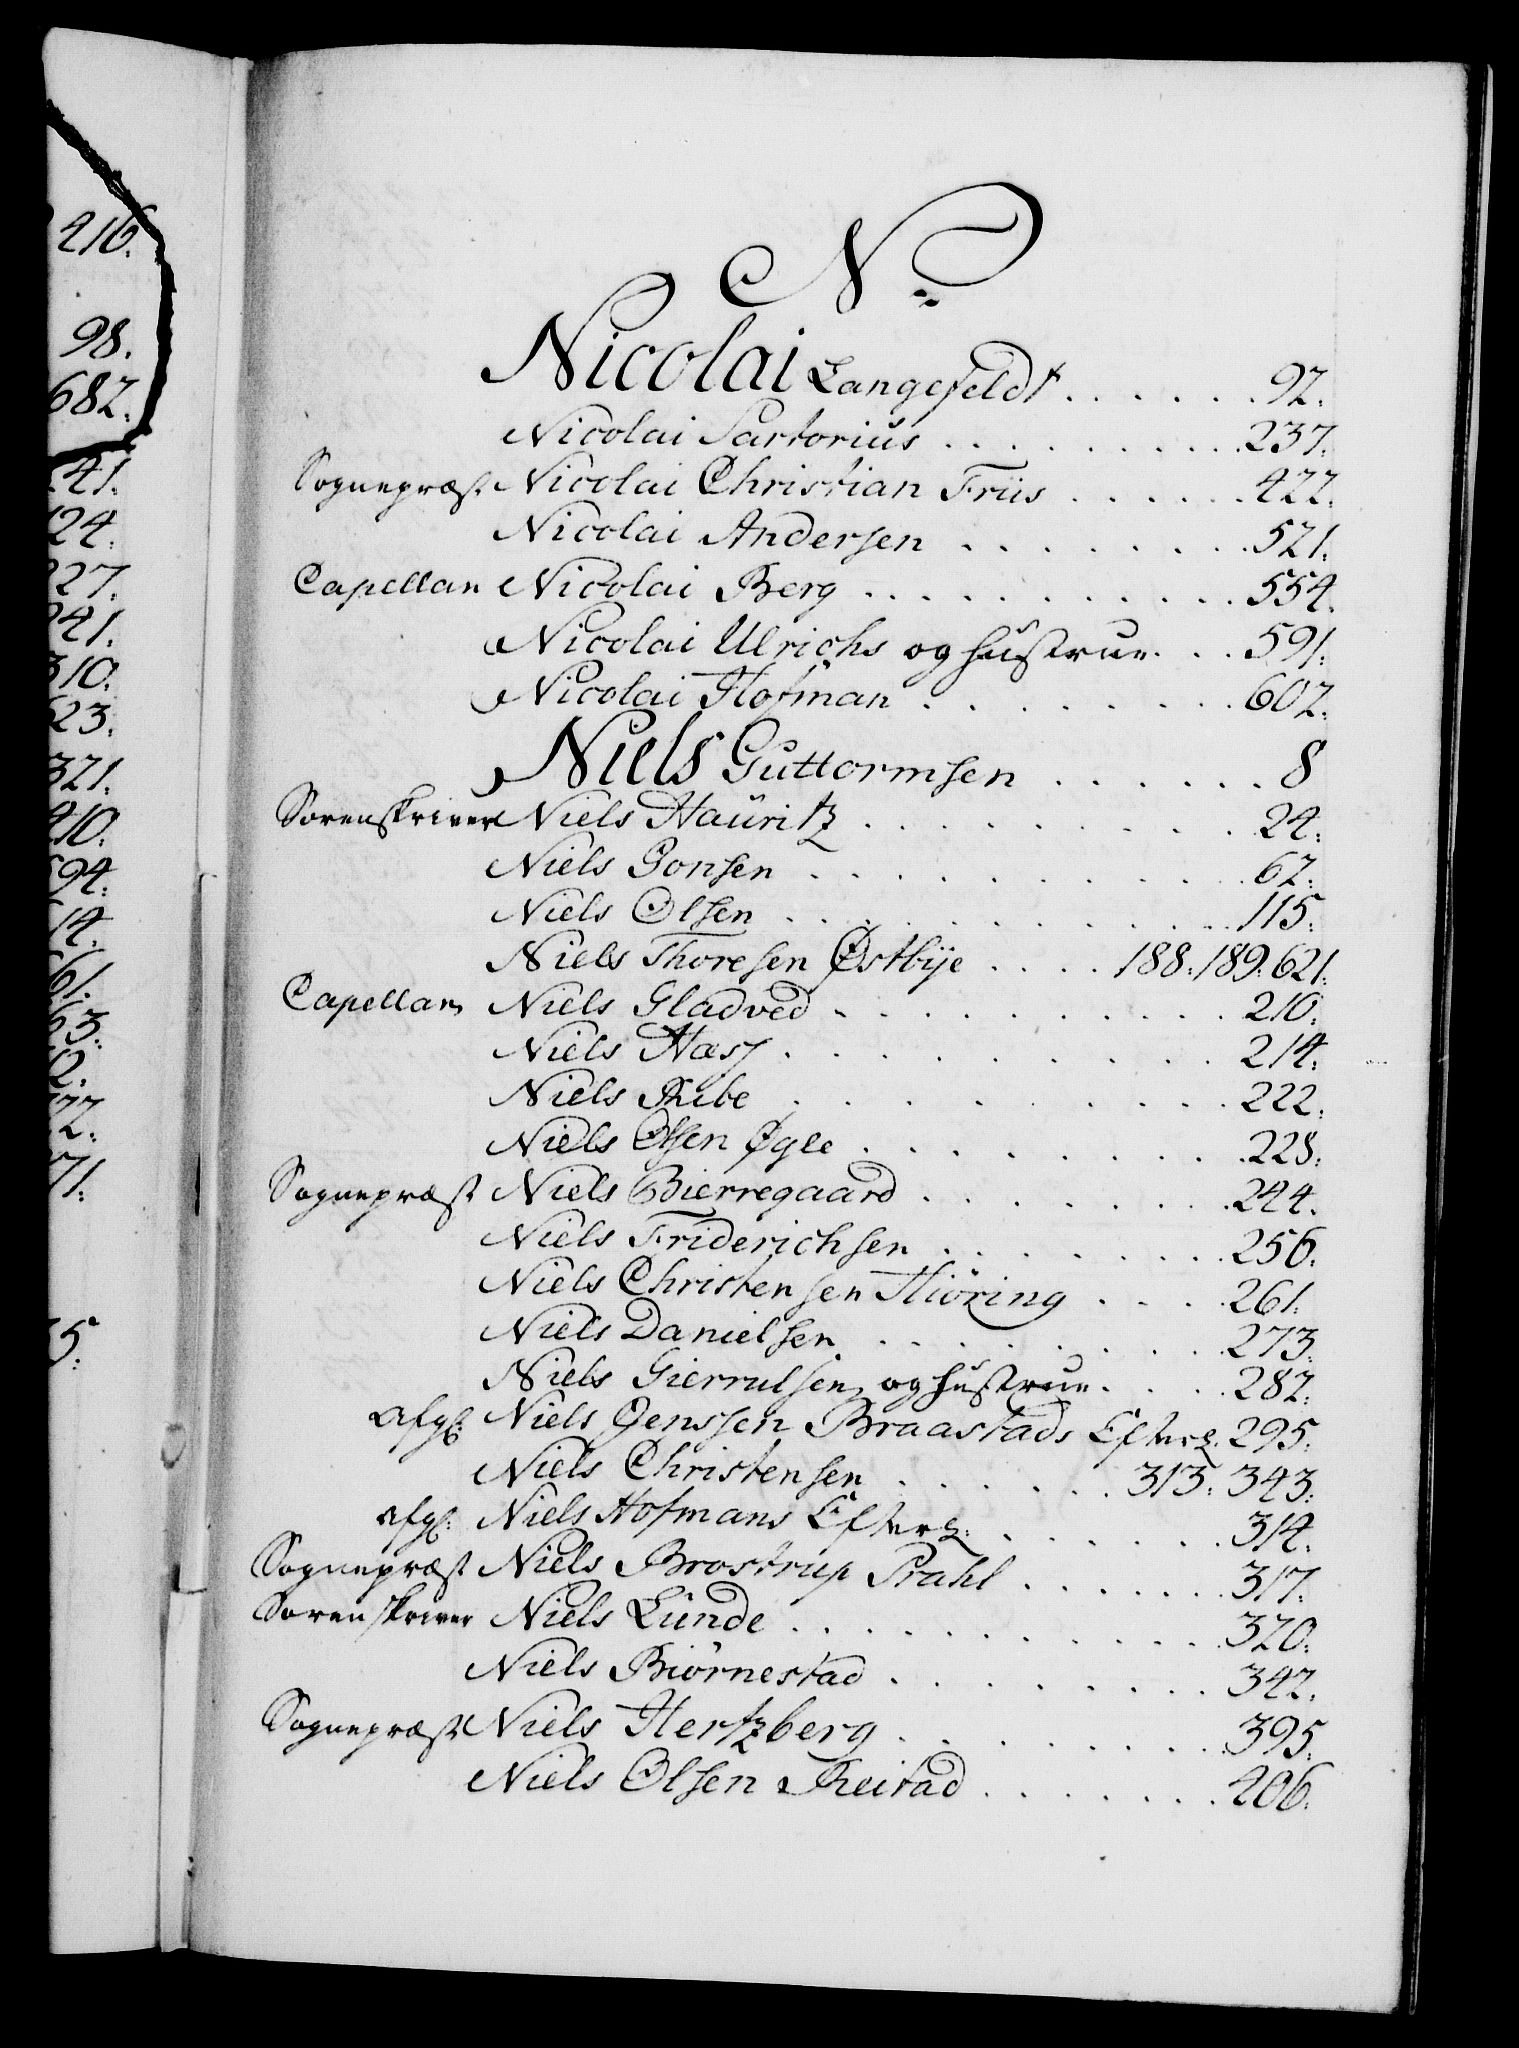 N
Nicolai Langefeldt . . . . . . . 92.
Nicolai Sartorius . . . . . . . . . 237.
Sognepræst Nicolai Christian Friis . . . . . . 422.
Nicolai Andersen . . . . . . . . 521.
Capellan Nicolai Berg . . . . . . . . . . . 554.
Nicolai Ulrichs og Hustrue . . . 591.
Nicolai Hofman . . . . . . . . 602.
Niels Guttormsen . . . . . . . 8
Sorenskriver Niels Hauritz . . . . . . . . . . 24.
Niels Jonsen . . . . . . . . . . . 62.
Niels Olsen . . . . . . . . . . . 115.
Niels Thoresen Østbye . . . . 188. 189. 621.
Capellan Niels Gladved . . . . . . . . . . . 210.
Niels Hasf . . . . . . . . . . 214.
Niels Ribe . . . . . . . . . . 222.
Niels Olsen Øgle . . . . . . . . . . 228.
Sognepræst Niels Bierregaard . . . . . . . . 244.
Niels Friderichsen . . . . . . . . 256.
Niels Christensen Hiöring . . . . 261.
Niels Danielsen . . . . . . . . . 273.
Niels Gierrulsen og Hustrue . . . . 282.
Afg: Niels Jenssen Braastads Efterl. 295.
Niels Christensen . . . . . . 313. 343.
Afg: Niels Hofmans Efterl: . . . . . . . 314.
Sognepræst Niels Brostrup Prahl . . . . . . . 317.
Sorenskriver Niels Lunde . . . . . . . . . . . 320.
Niels Biörnestad . . . . . . . . . 342.
Sognepræst Niels Hertzberg . . . . . . . . . 395.
Niels Olsen Reitad . . . . . . . 406.
416.
98.
682.
41.
24.
27.
41.
310.
23.
321.
410.
94.
14.
61.
63.
2.
72.
71.
15.